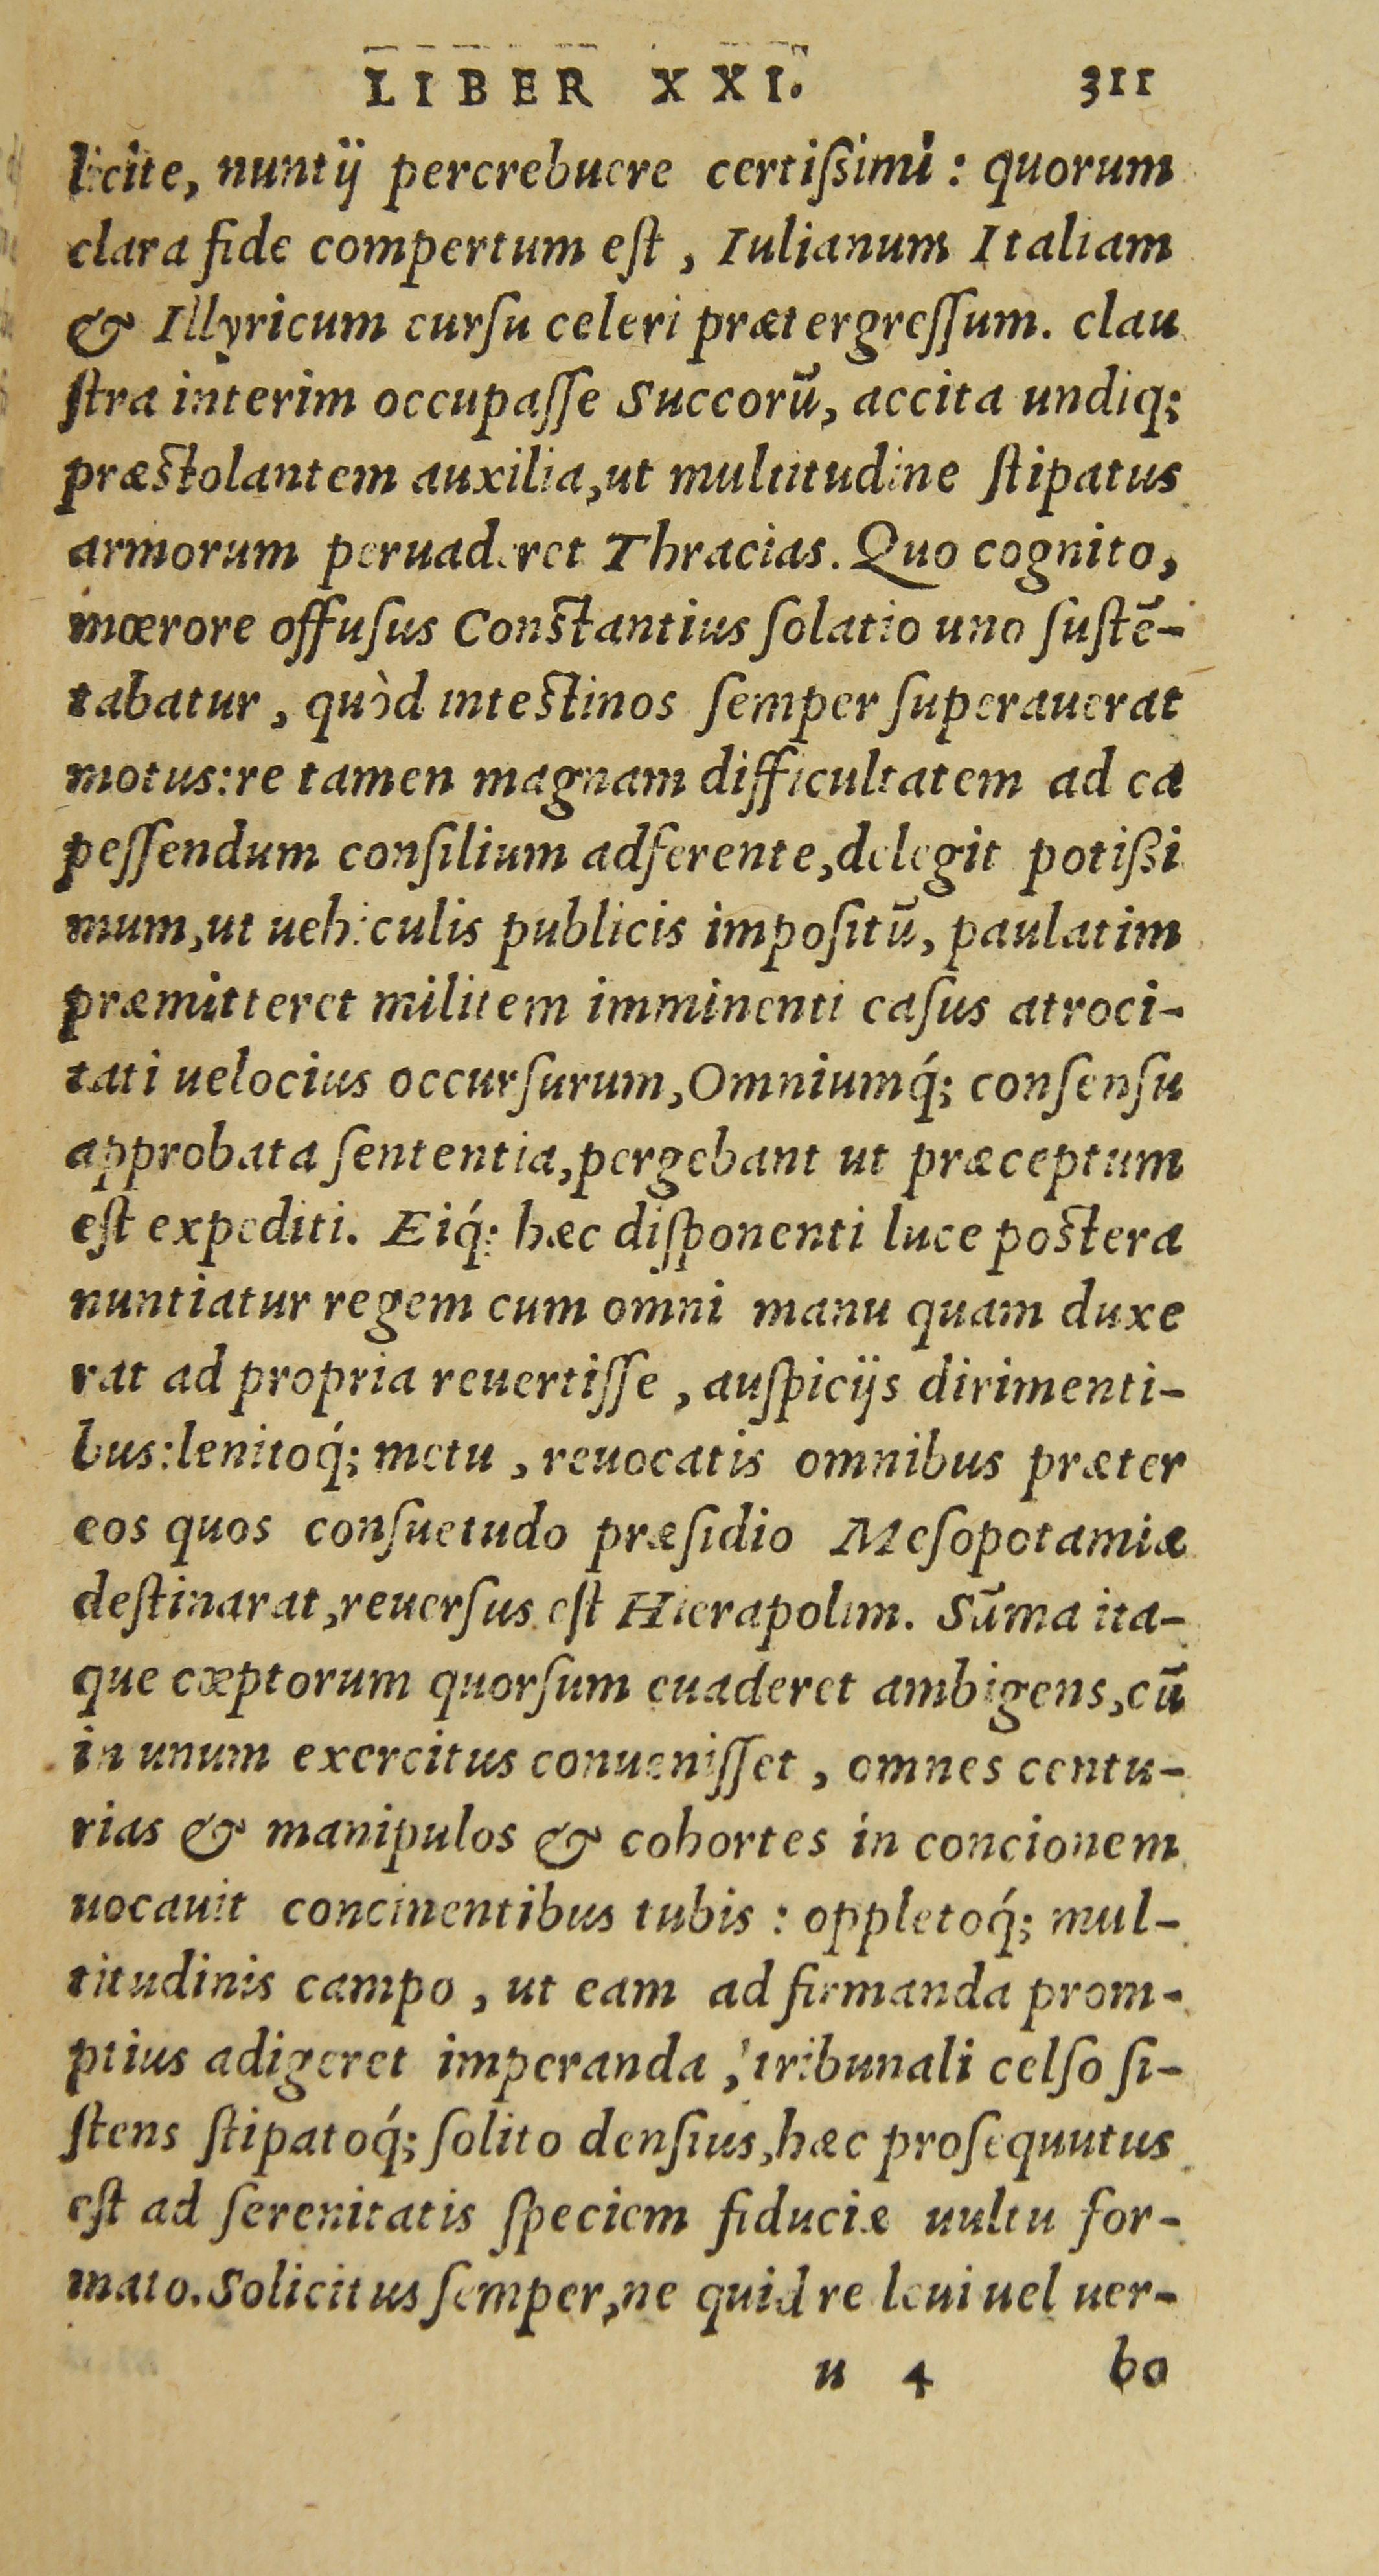 LIBER XXI. 311
licite, nuntij percrebuere certiſsimi : quorum
clara fide compertum eſt, Iulianum Italiam
& Illyricum curſu celeri prætergreſſum. clau
ſtra interim occupaſſe Succorū, accita undiq;
præſtolantem auxilia, ut multitudine ſtipatus
armorum peruaderet Thracias. Quo cognito,
mœrore offuſus Conſtantius ſolatio uno ſuſtē-
tabatur, quòd inteſtinos ſemper ſuperauerat
motus: re tamen magnam difficultatem ad ca
peſſendum conſilium adferente, delegit potiſsi
mum, ut uehiculis publicis impoſitū, paulatim
præmitteret militem imminenti caſus atroci-
tati uelocius occurſurum, Omniumq́; conſenſu
approbata ſententia, pergebant ut præceptum
eſt expediti. Eiq́; hæc diſponenti luce poſtera
nuntiatur regem cum omni manu quam duxe
rat ad propria reuertiſſe, auſpicijs dirimenti-
bus: lenitoq́; metu, reuocatis omnibus præter
eos quos conſuetudo præſidio Meſopotamiæ
deſtinarat, reuerſus eſt Hierapolim. Sūma ita-
que cœptorum quorſum euaderet ambigens, cū
in unum exercitus conueniſſet, omnes centu-
rias & manipulos & cohortes in concionem
uocauit concinentibus tubis : oppletoq́; mul-
titudinis campo, ut eam ad firmanda prom-
ptius adigeret imperanda, tribunali celſo ſi-
ſtens ſtipatoq́; ſolito denſius, hæc proſequutus
eſt ad ſerenitatis ſpeciem fiduciæ uultu for-
mato. Solicitus ſemper, ne quid re leui uel uer-
u 4 bo